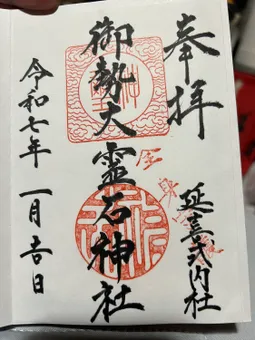 奉拝
延喜式内社
御勢大靈石神社
令和七年 一月吉日